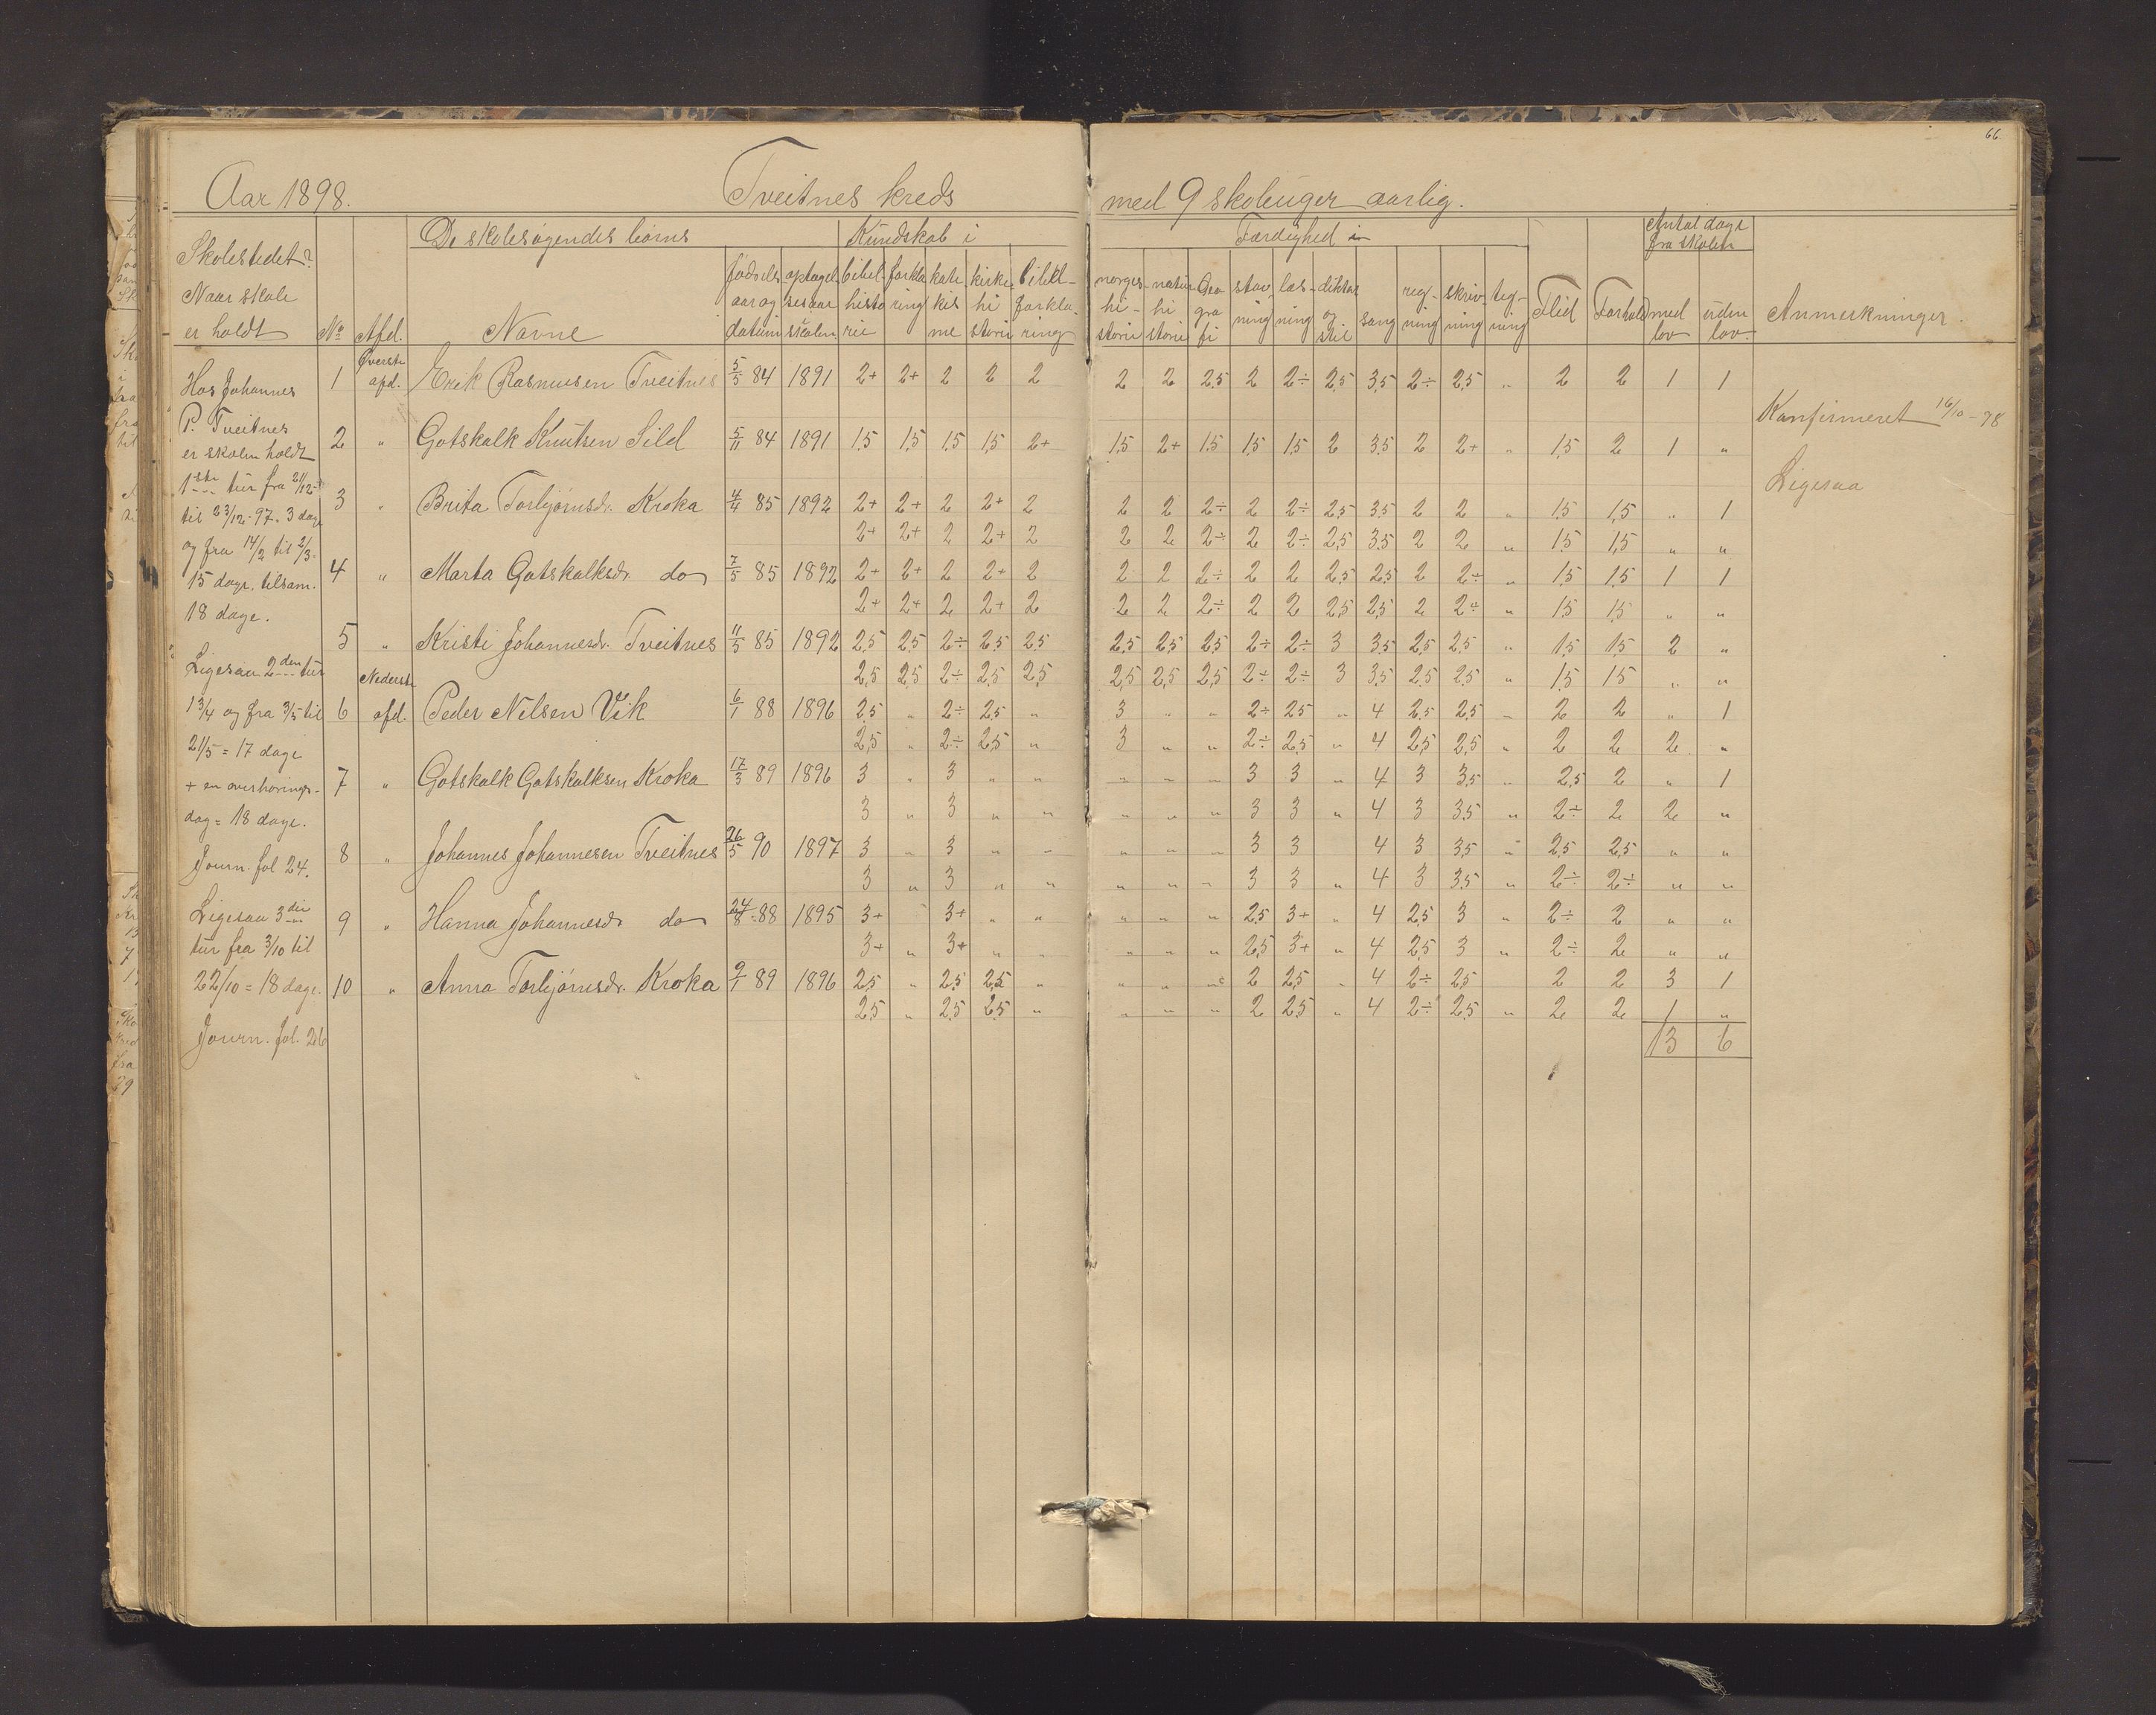 66.
Aar 1898. Tveitnes kreds med 9 skoleuger aarlig.
De skolesøgendes børns Kundskab i Færdighed i Antal dage fra skolen
Skolestedet? Naar skole er holdt No Afd. Navne fødsels aar og datum optagelsesaar skolen. bibelhistorie forklaring katekisme kirkehistorie bibelforklaring norgeshistorie naturhistorie Geografi stavning læsning diktat og stil sang regning skrivning tegning Flid Forhold med lov uden lov. Anmerkninger.
Hos Johannes
P. Tveitnes
er skolen holdt
1ste tur fra 21/12
til 23/12-97. 3 dage
og fra 14/2 til 2/3.
15 dage. tilsam.
18 dage.
Ligesaa 2den tur
13/4 og fra 3/5 til
21/5 = 17 dage
+ en overhørings-
dag = 18 dage.
Journ. fol 24.
Ligesaa 3die
tur fra 3/10 til
22/10 = 18 dage.
Journ. fol. 26
1 Øverste afd. Erik Rasmusen Tveitnes 5/5 84 1891 2+ 2+ 2 2 2 2 2 2,5 2 2÷ 2,5 3,5 2÷ 2,5 " 2 2 1 1
Konfirmeret 16/10-98
2 " Gotskalk Knutsen Sild 5/11 84 1891 1,5 1,5 1,5 1,5 2+ 1,5 2+ 1,5 1,5 1,5 2 3,5 2 2+ " 1,5 2 1 "
Ligesaa
3 " Brita Torbjørnsdr. Kroka 4/4 85 1892 2+ 2+ 2 2+ 2 2 2 2÷ 2 2÷ 2,5 3,5 2 2 " 1,5 1,5 " 1
2+ 2+ 2 2+ 2 2 2 2÷ 2 2÷ 2,5 3,5 2 2 " 1,5 1,5 " "
4 " Marta Gotskalksdr. do 7/5 85 1892 2+ 2+ 2 2+ 2 2 2 2÷ 2 2 2,5 2,5 2 2÷ " 1,5 1,5 1 1
2+ 2+ 2 2+ 2 2 2 2÷ 2 2 2,5 2,5 2 2÷ " 1,5 1,5 " "
5 " Kristi Johannesdr. Tveitnes 11/5 85 1892 2,5 2,5 2÷ 2,5 2,5 2,5 2,5 2,5 2÷ 2÷ 3 3,5 2,5 2,5 " 1,5 1,5 2 "
2,5 2,5 2÷ 2,5 2,5 2,5 2,5 2,5 2÷ 2÷ 3 3,5 2,5 2,5 " 1,5 1,5 " "
6 Nederste afd. Peder Nilsen Vik 6/1 88 1896 2,5 " 2÷ 2,5 " 3 " " 2÷ 2,5 " 4 2,5 2,5 " 2 2 " 1
2,5 " 2÷ 2,5 " 3 " " 2÷ 2,5 " 4 2,5 2,5 " 2 2 2 "
7 " Gotskalk Gotskalksen Kroka 17/3 89 1896 3 " 3 " " " " " 3 3 " 4 3 3,5 " 2,5 2 " 1
3 " 3 " " " " " 3 3 " 4 3 3,5 " 2÷ 2 2 "
8 " Johannes Johannesen Tveitnes 26/5 90 1897 3 " 3 " " " " " 3 3 4 3 3,5 " 2,5 2,5 " "
3 " 3 " " " " " 3 3 " 4 3 3,5 " 2÷ 2÷ " "
9 " Hanna Johannesdr. do 24/8 88 1895 3+ " 3+ " " " " " 2,5 3+ " 4 2,5 3 " 2÷ 2 " "
3+ " 3+ " " " " " 2,5 3+ " 4 2,5 3 " 2÷ 2 " "
10 " Anna Torbjørnsdr. Kroka 9/1 89 1896 2,5 " 2,5 2,5 " " " " 2 2,5 " 4 2÷ 2,5 2 2 3 1
2,5 " 2,5 2,5 " " " " 2 2,5 " 4 2÷ 2,5 " 2 2 1 "
13 6